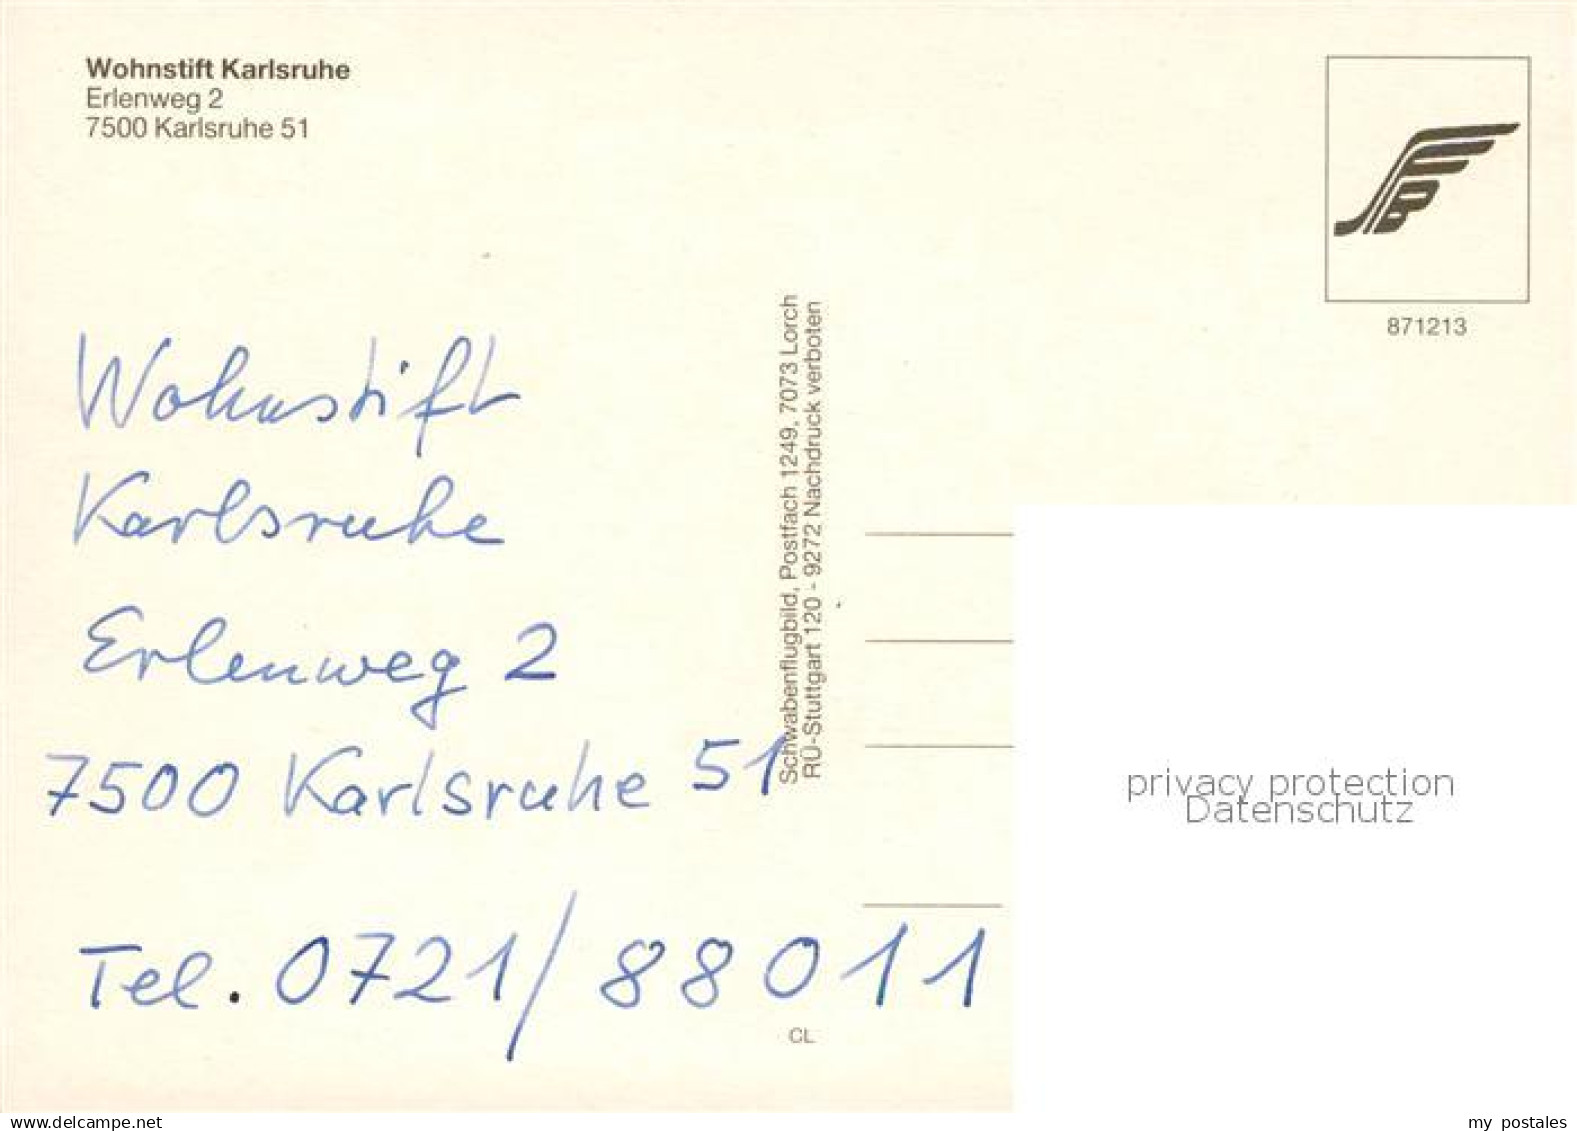 Wohnstift Karlsruhe
Erlenweg 2
7500 Karlsruhe 51
871213
Wohnstift
Karlsruhe
Erlenweg 2
7500 Karlsruhe 51
Tel. 0721/88011
Schwabenflugbild, Postfach 1249, 7073 Lorch
RÜ-Stuttgart 120 - 9272 Nachdruck verboten
CL
privacy protection
Datenschutz
www.delcampe.net
my postales